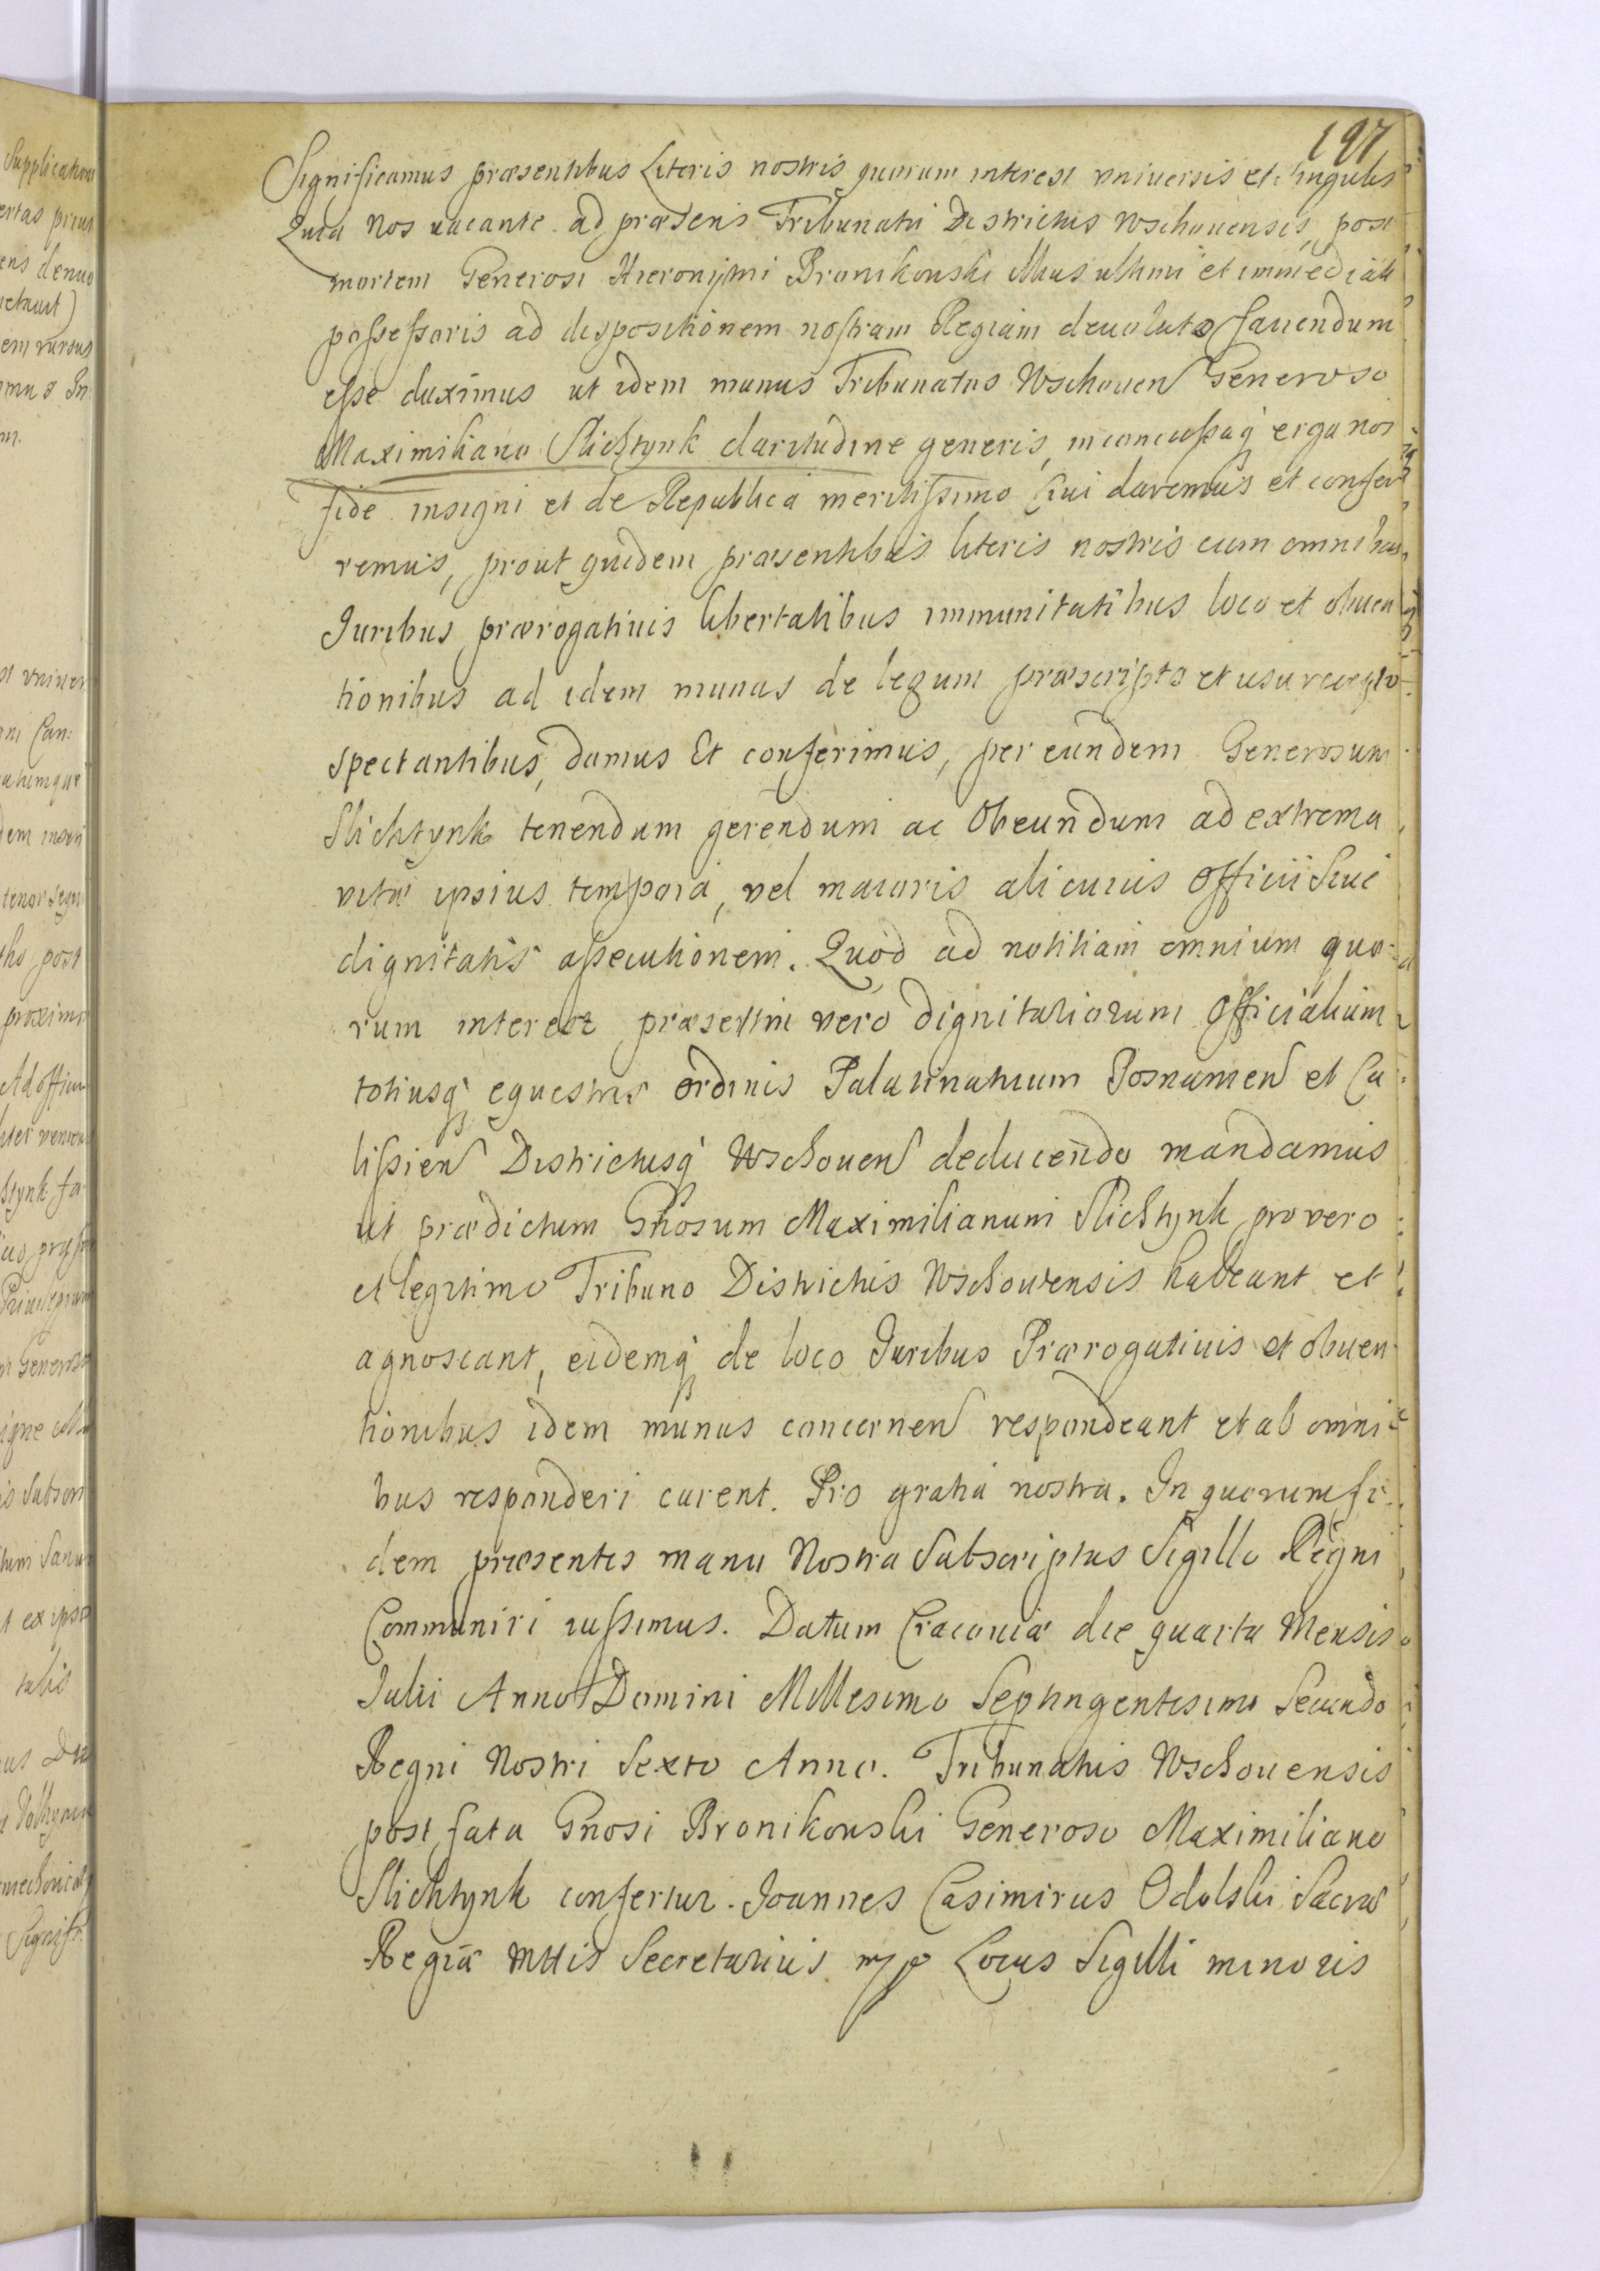 197
Significamus præsentibus Literis nostris quorum interest vniuersis et singulis
Quia Nos vacante ad præsens Tribunatu Districtus Wschouensis, post
mortem Generosi Hieronijmi Bronikonski illius ultimi et immediati
possessoris ad dispositionem nostram Regiam deuoluto fauendum
esse duximus ut idem munus Tribunatus Wschouen Generoso
Maximiliano Slichtynk claritudine generis, inconcussaq erga nos
fide insigni et de Republica meritissimo Sui daremus et confer
remus, prout quidem præsentibus literis nostris cum omnibus
Juribus prærogatiuis libertatibus immunitatibus loco et obuen
tionibus ad idem munus de legum præscripto et usu recepto
spectantibus, damus Et conferimus, per eundem Generosum
Slichtynk tenendum gerendum ac Obeundum ad extrema
vitæ ipsius tempora, vel maioris alicuius Officii siue
dignitatis assecutionem. Quod ad notitiam omnium quo-
rum interest præsertim vero dignitariorum Officialium
totiusq equestris ordinis Palatinatuum Posnanien et Ca
lissien Districtusq Wschouen deducendo mandamus
ut prædictum Gnosum Maximilianum Slichtynk pro vero
et legitimo Tribuno Districtus Wschouensis habeant et
agnoscant, eidemq de loco Juribus Prærogatiuis et obuen
tionibus idem munus concernen respondeant et ab omni
bus responderi curent. Pro gratia nostra. In quorum fi
dem præsentes manu Nostra Subscriptas Sigillo Regni
Communiri iussimus. Datum Cracouiæ die quarta Mensis
Julii Anno Domini Millesimo Septingentesimo Secundo
Regni Nostri Sexto Anno. Tribunatus Wschouensis
post fata Gnosi Bronikonski Generoso Maximiliano
Slichtynk confertur. Joannes Casimirus Odolski Sacræ
Regiæ Mttis Secretarius mp Locus Sigilli minoris